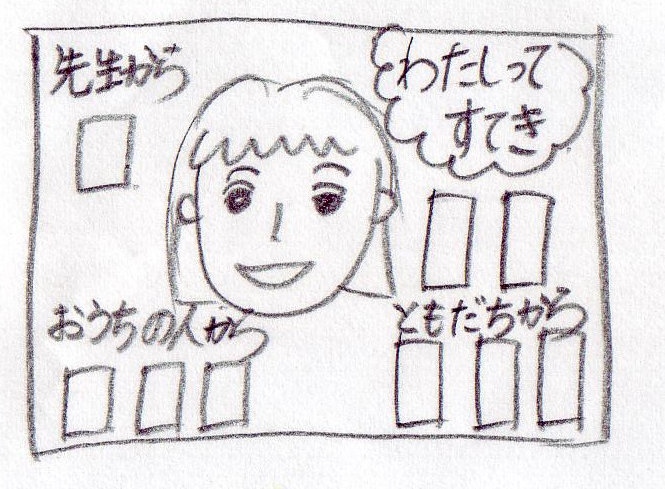 先生から
わたしって
すてき
おうちの人から
ともだちから